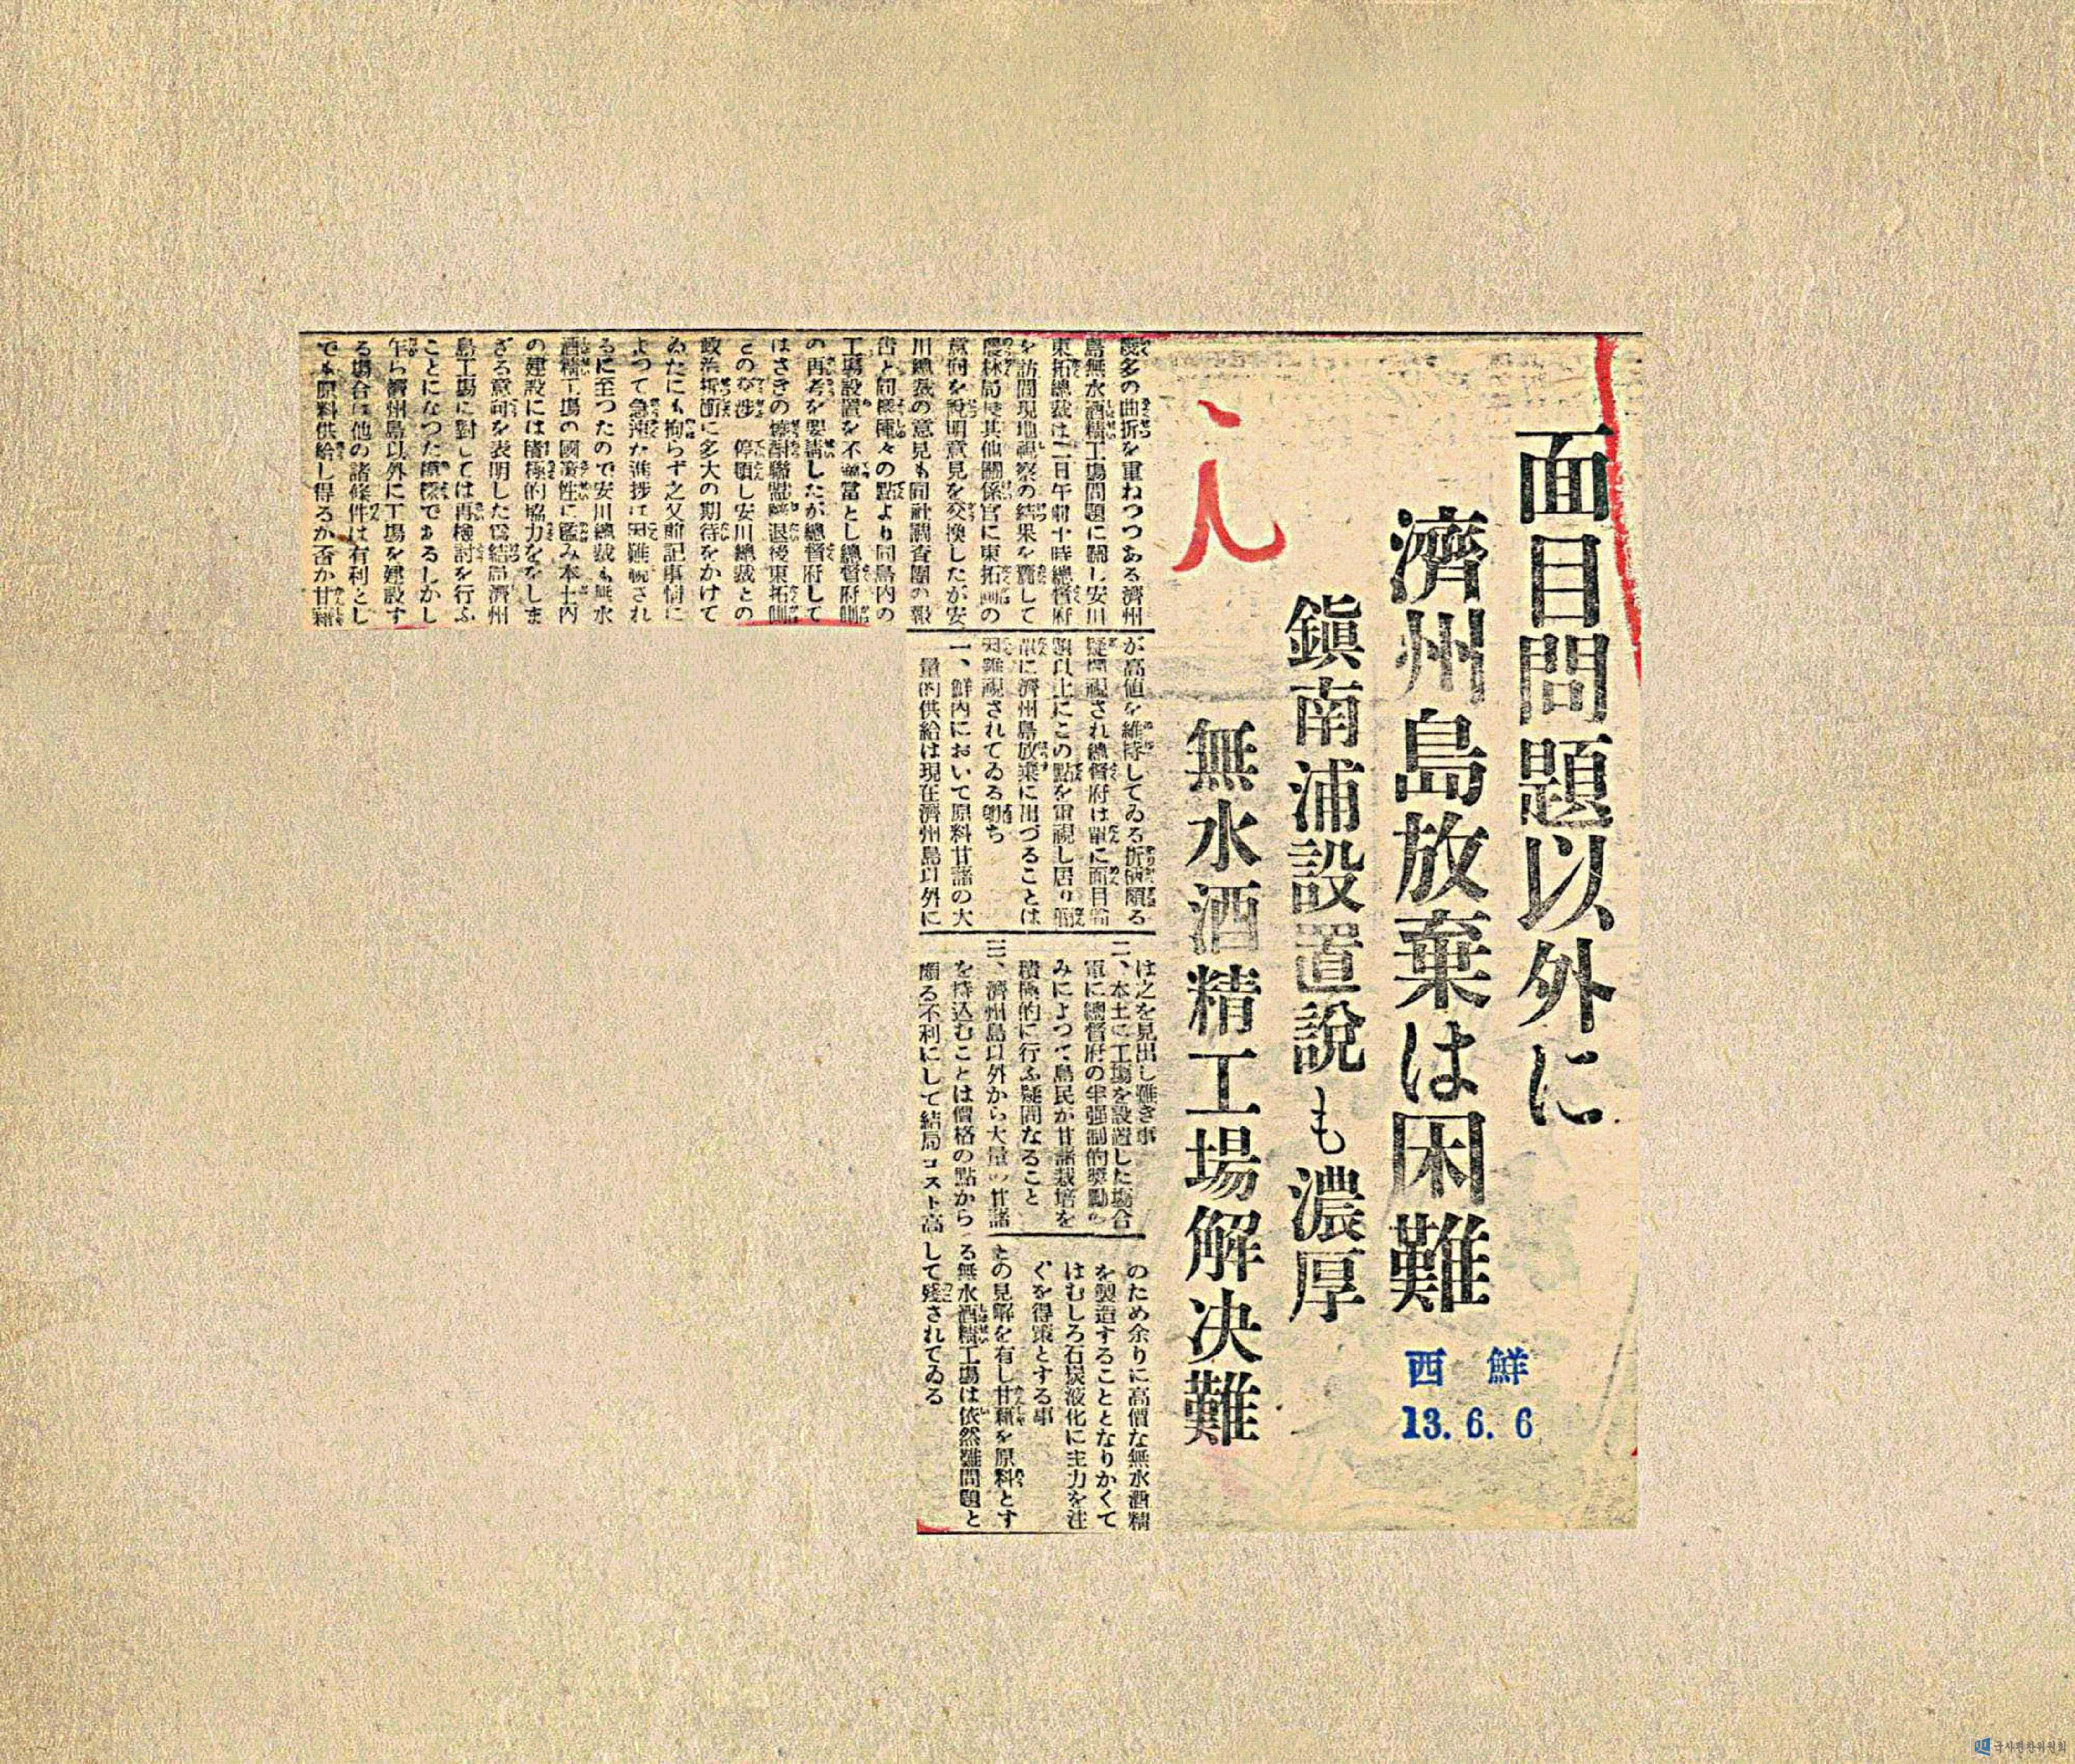 面目問題以外に
濟州島放棄は困難
鎭南浦設置說も濃厚
無水酒精工場解決難
西鮮
13.6.6
幾多の曲折を重ねつつある濟州
島無水酒精工場問題に關し安川
東拓總裁は二日午前十時總督府
を訪問現地視察の結果を齎して
農林局長其他關係官に東拓側の
意向を說明意見を交換したが安
川總裁の意見も同社調査團の報
告と同樣種々の點より同島內の
工場設置を不適當とし總督府側
の再考を要請したが總督府して
はさきの燒酎聯盟 退後東拓側
との交涉 停頓し安川總裁との
政治折衝に多大の期待をかけて
ゐたにも拘らず之又前記事情に
よつて急速な進捗は困難視され
るに至つたので安川總裁も無水
酒精工場の國策性に鑑み本土內
の建設には積極的協力ををしま
ざる意向を表明した爲結局濟州
島工場に對しては再檢討を行ふ
ことになつた模樣であるしかし
乍ら濟州島以外に工場を建設す
る場合は他の諸條件は有利とし
ても原料供給し得るか否か甘藷
が高値を維持してゐる折柄頗る
疑問視され總督府は單に面目問
題以上にこの點を重視し居り
單に濟州島放棄に出づることは
困難視されてゐる卽ち
一、鮮內において原料甘藷の大
量的供給は現在濟州島以外に
は之を見出し難き事
二、本土に工場を設置した場合
單に總督府の半强制的獎勵の
みによつて島民が甘藷栽培を
積極的に行ふ疑問なること
三、濟州島以外から大量の甘藷
を持込むことは價格の點から
頗る不利にして結局コスト高
のため余りに高價な無水酒精
を製造することとなりかくて
はむしろ石炭液化に主力を注
ぐを得策とする事
との見解を有し甘藷を原料とす
る無水酒精工場は依然難問題と
して殘されてゐる
국사편찬위원회